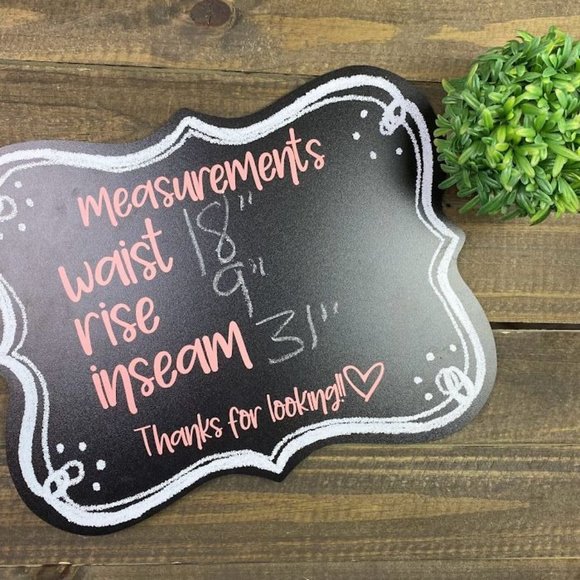 measurements
waist 18"
rise 9"
inseam 31"
Thanks for looking!!